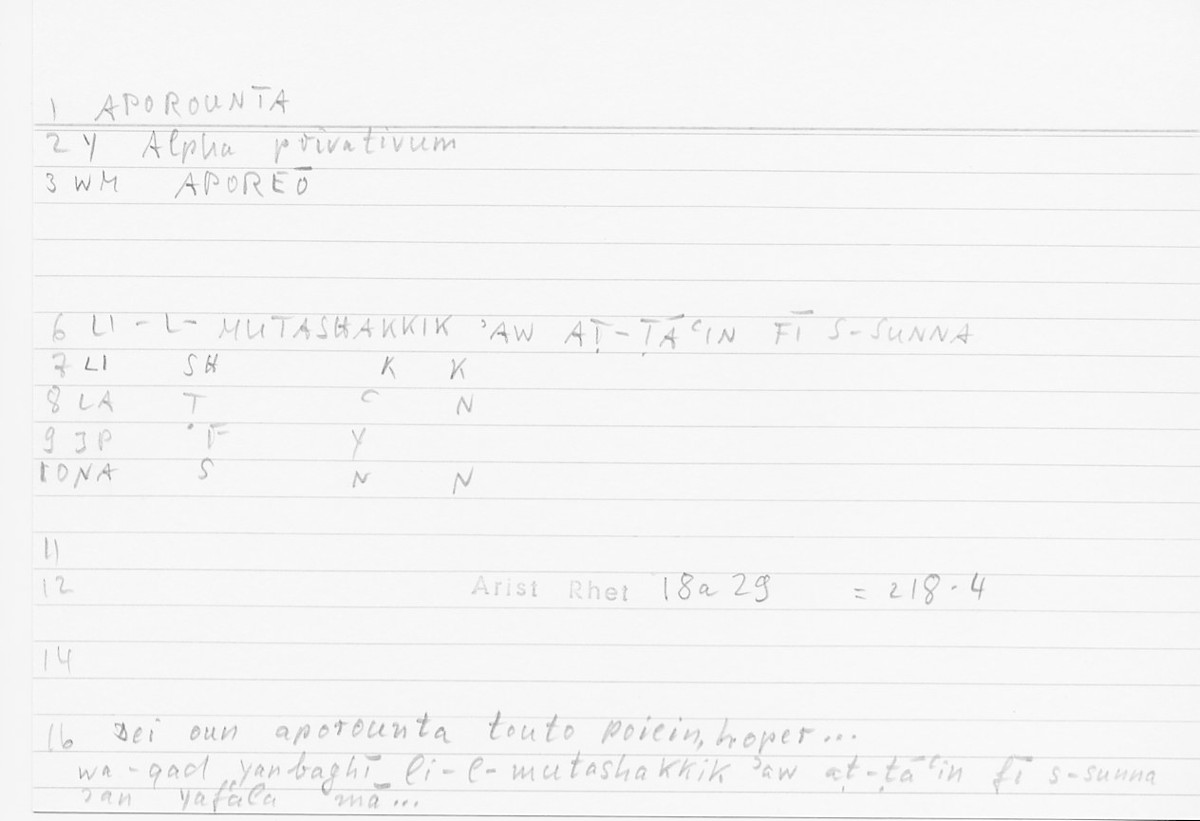 1 APOROUNTA
2 Y Alpha privativum
3 WM APOREŌ
6 LI-L- MUTASHAKKIK ʾAW AṬ-ṬĀʿIN FĪ S-SUNNA
7 LI SH K K
8 LA T ʿ N
9 JP F Y
10 NA S N N
11
12 Arist Rhet 18a 29 = 218.4
14
16 Dei oun aporounta touto poiein, hoper...
wa-qad yanbaghī li-l-mutashakkik ʾaw aṭ-ṭāʿin fī s-sunna
ʾan yafʿala mā...